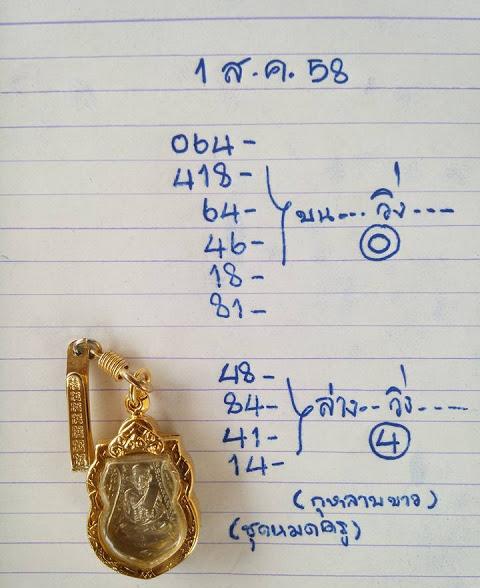 1 ส.ค. 58
064-
418-
64- บน... วิ่ง ---
46- 0
18-
81-
48-
84- ล่าง.. วิ่ง ----
41- 4
14-
(กุหลาบขาว)
(ชุดหมดครู)